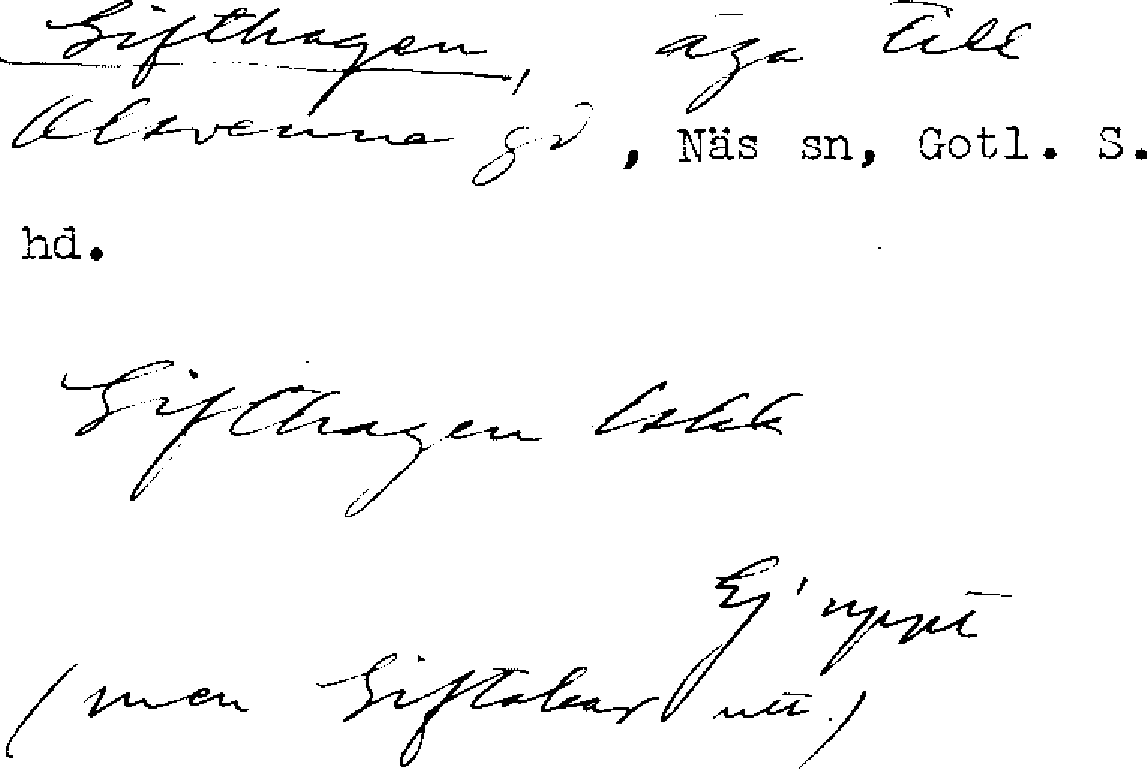 Gifthagen, äga till
Alsvenne gd, Näs sn, Gotl. S.
hd.
Gifthagen Lskk
Ej uppt
(men Giftakar utt.)